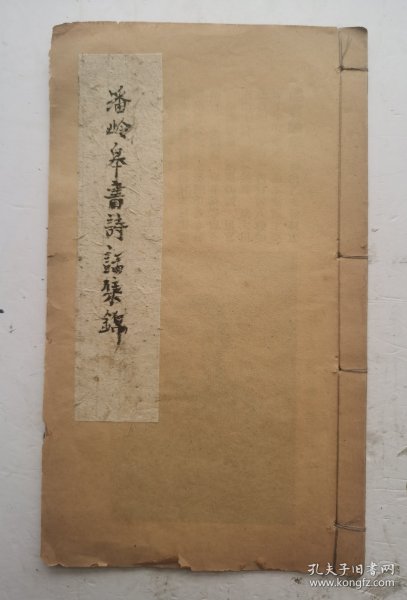 潘龄皋书詩謡集錦
孔夫子旧书网
www.kongfz.com